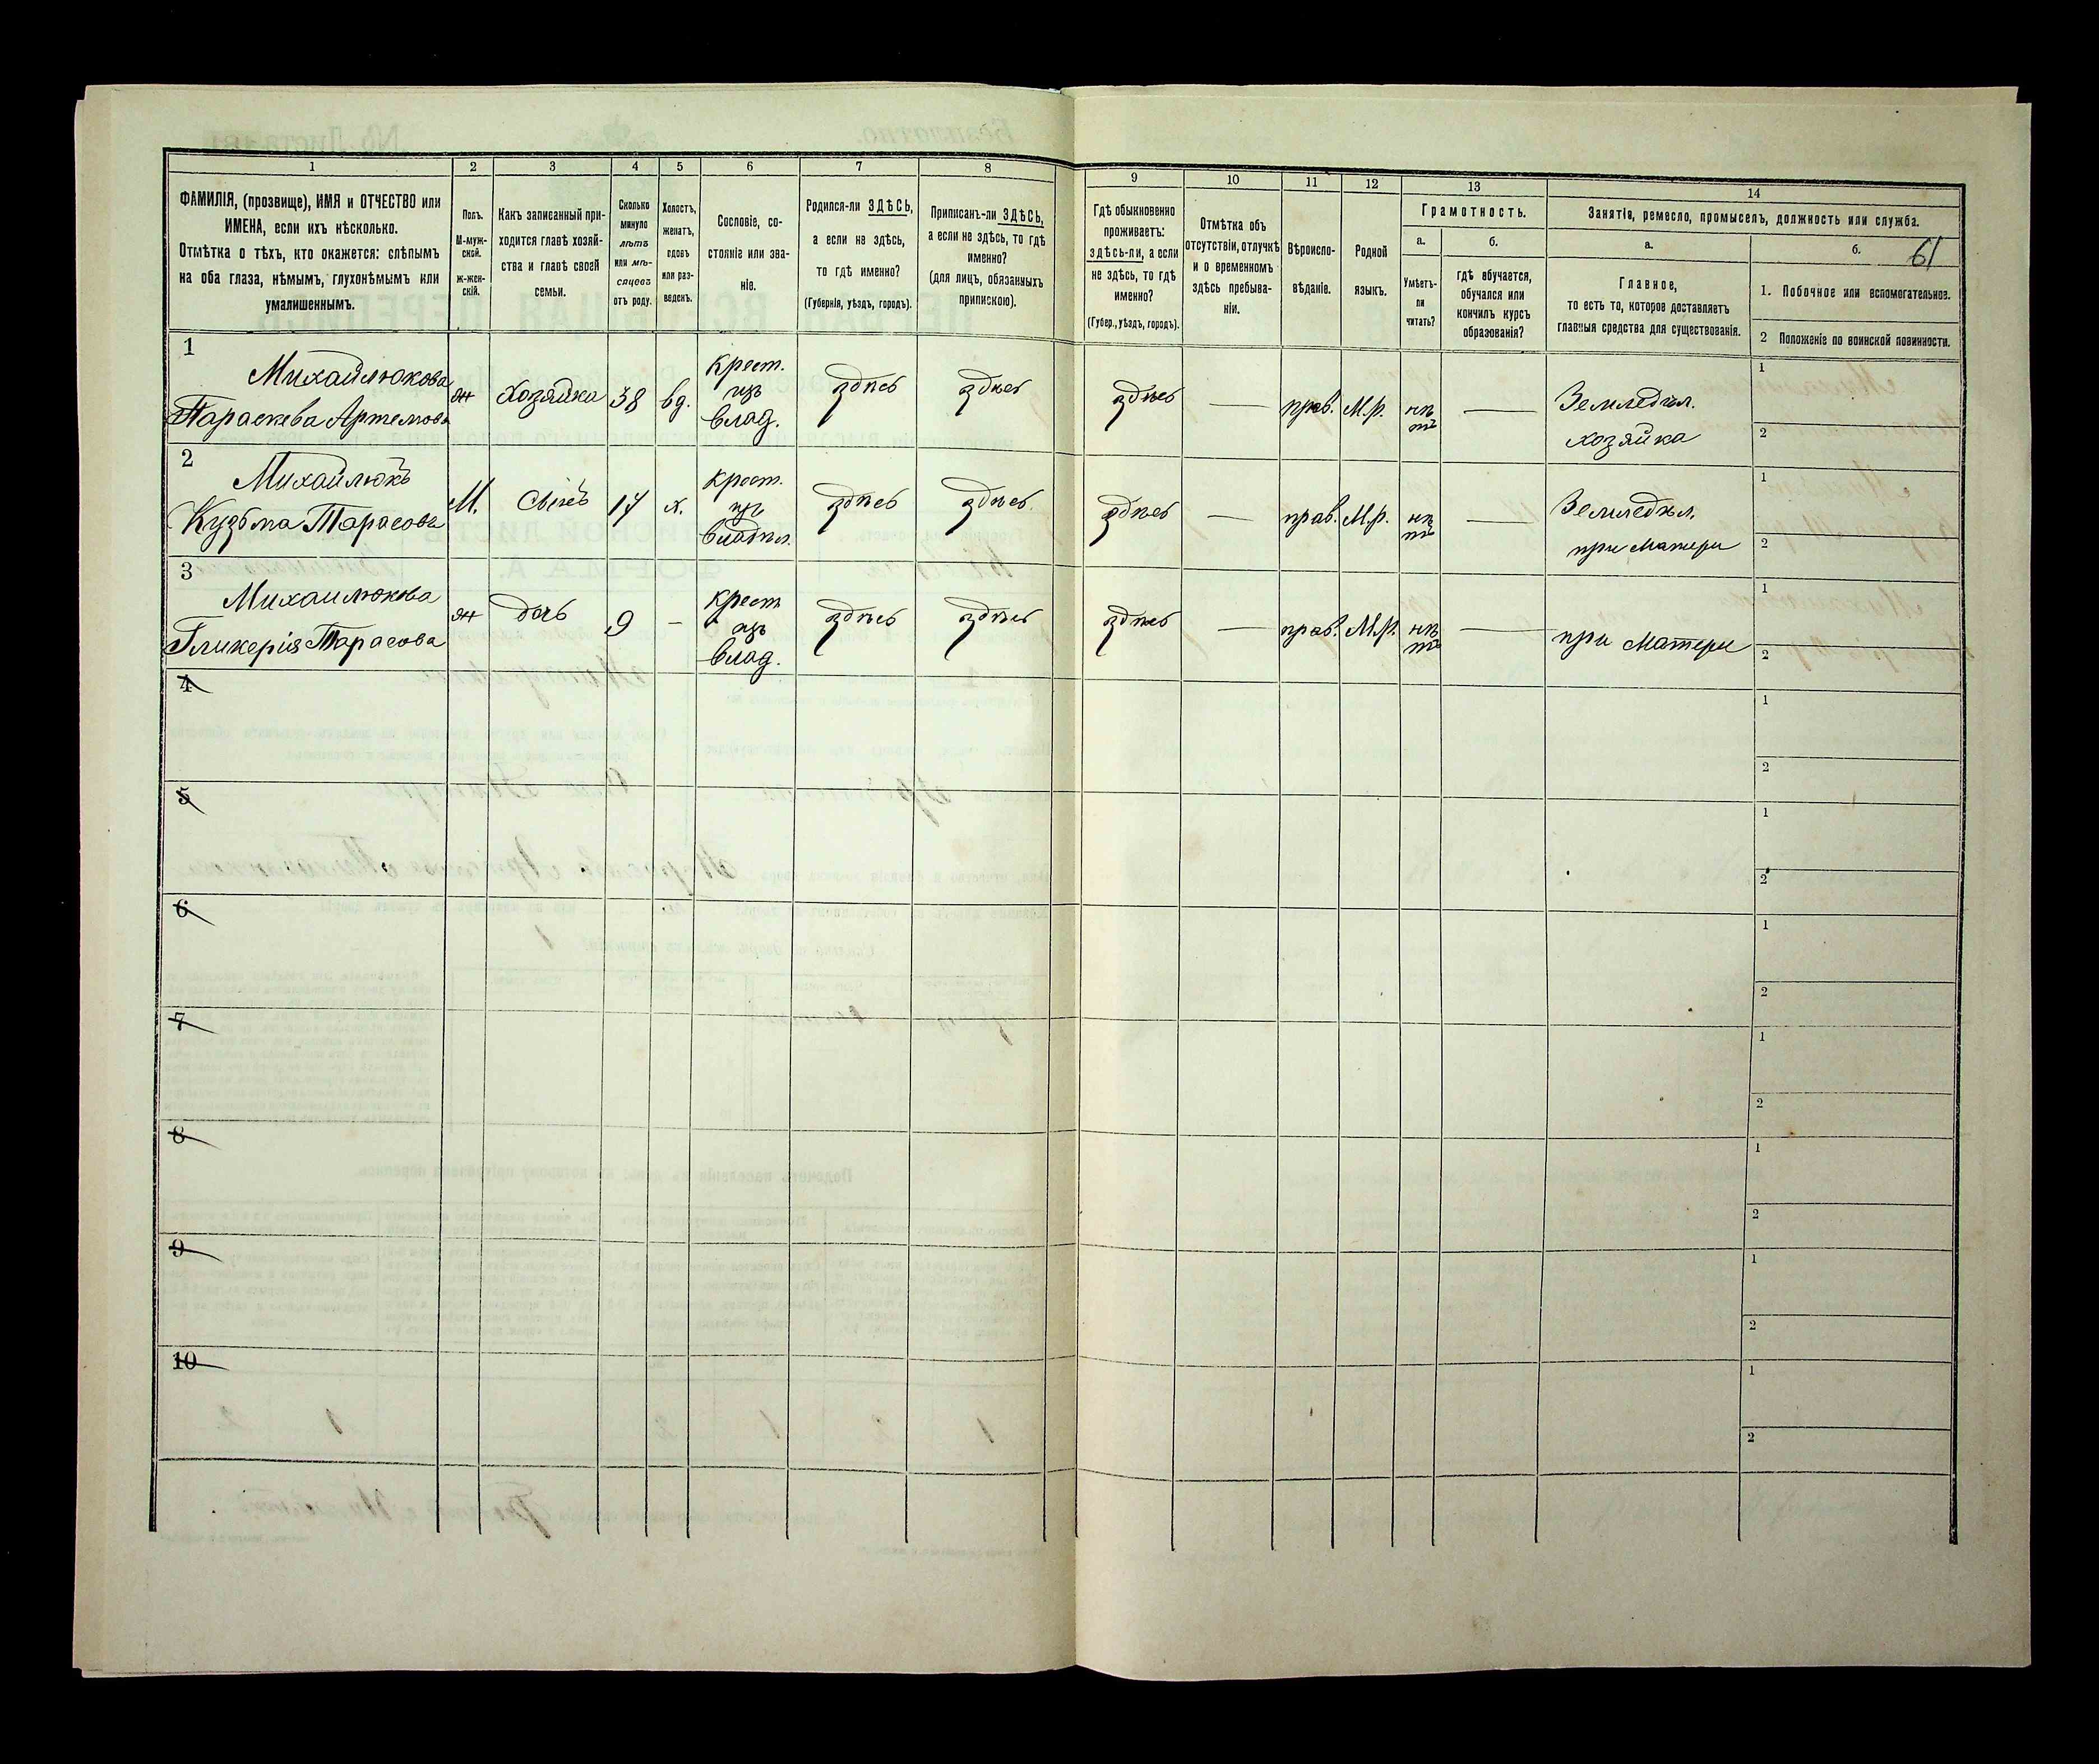 1 2 3 4 5 6 7 8 9 10 11 12 13 14
ФАМИЛІЯ, (прозвище), ИМЯ и ОТЧЕСТВО или
ИМЕНА, если ихъ нѣсколько.
Отмѣтка о тѣхъ, кто окажется: слѣпымъ
на оба глаза, нѣмымъ, глухонѣмымъ или
умалишеннымъ.
Полъ.
М-муж-
ской.
ж-жен-
скій.
Какъ записанный при-
ходится главѣ хозяй-
ства и главѣ своей
семьи.
Сколько
минуло
лѣтъ
или мѣ-
сяцевъ
отъ роду.
Холостъ,
женатъ,
вдовъ
или раз-
веденъ.
Сословіе, со-
стояніе или зва-
ніе.
Родился-ли ЗДѢСЬ,
а если не здѣсь,
то гдѣ именно?
(Губернія, уѣздъ, городъ).
Приписанъ-ли ЗДѢСЬ,
а если не здѣсь, то гдѣ
именно?
(для лицъ, обязанныхъ
припискою).
Гдѣ обыкновенно
проживаетъ:
здѣсь-ли, а если
не здѣсь, то гдѣ
именно?
(Губер., уѣздъ, городъ).
Отмѣтка объ
отсутствіи, отлучкѣ
и о временномъ
здѣсь пребыва-
ніи.
Вѣроиспо-
вѣданіе.
Родной
языкъ.
Грамотность.
а.
Умѣетъ-
ли
читать?
б.
гдѣ обучается,
обучался или
кончилъ курсъ
образованія?
Занятіе, ремесло, промыселъ, должность или служба.
а.
Главное,
то есть то, которое доставляетъ
главныя средства для существованія.
б.
61
1. Побочное или вспомогательное.
2 Положеніе по воинской повинности.
1
Михайлюкова
Параскева Артемова
ж Хозяйка 38 вд.
Крест.
изъ
влад.
здѣсь здѣсь здѣсь — прав. М.р.
нѣ
тъ
—
Земледѣл.
хозяйка
1
2
2
Михайлюкъ
Кузьма Тарасовъ
М. Сынъ 14 х.
Крест.
изъ
владѣл.
здѣсь здѣсь здѣсь — прав. М.р.
нѣ
тъ
—
Земледѣл.
при Матери
1
2
3
Михаилюкова
Гликерія Тарасова
ж дочь 9 —
Крест
изъ
влад.
здѣсь здѣсь здѣсь — прав. М.р.
нѣ
тъ
—
при Матери
1
2
4
1
2
5
1
2
6
1
2
7
1
2
8
1
2
9
1
2
10
1
2